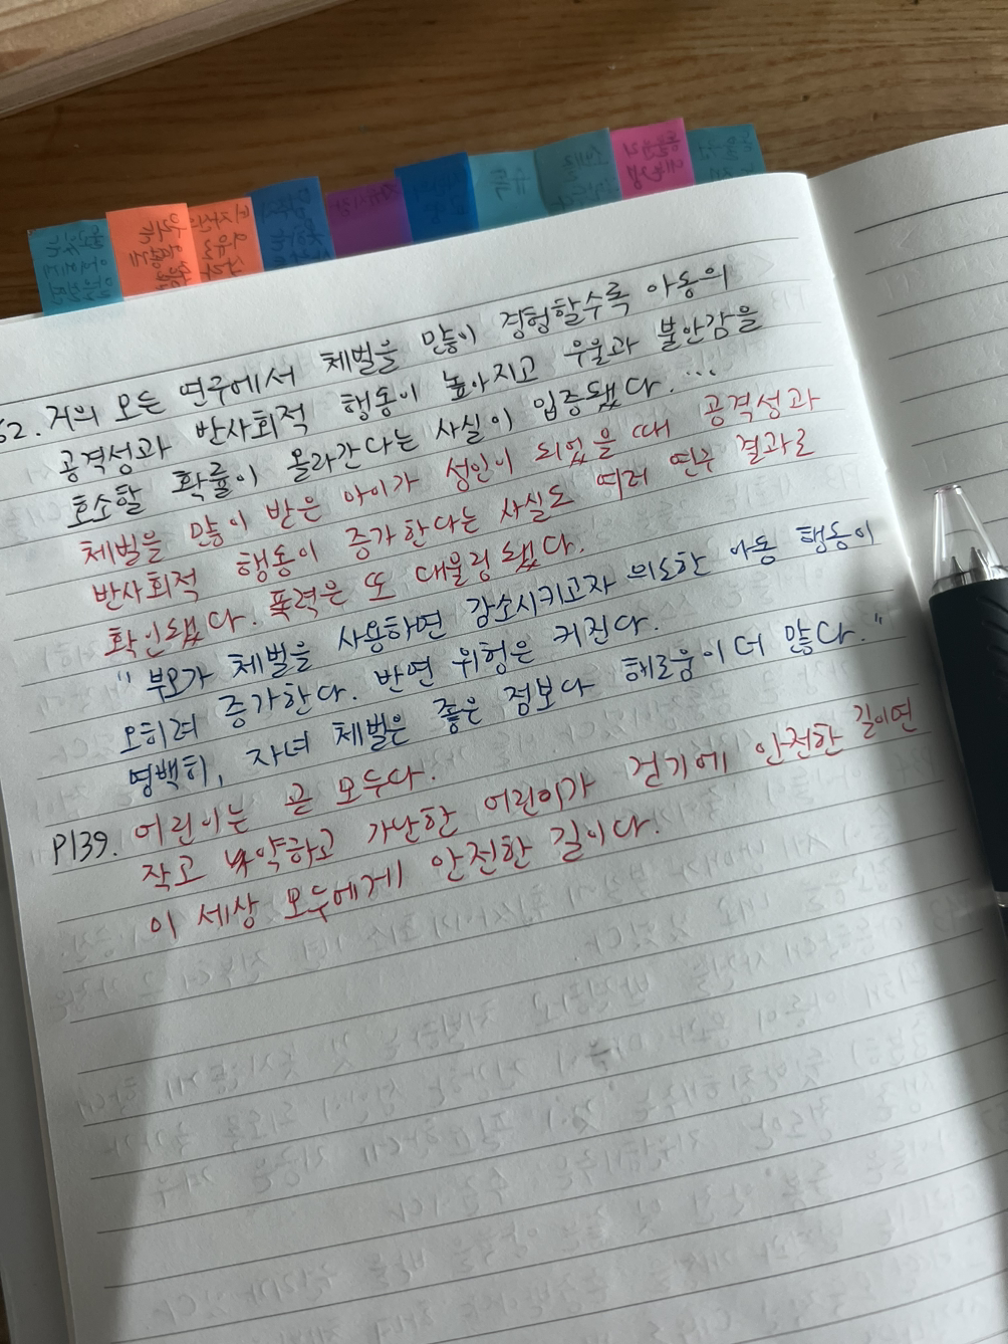 62. 거의 모든 연구에서 체벌을 많이 경험할수록 아동의
공격성과 반사회적 행동이 높아지고 우울과 불안감을
호소할 확률이 올라간다는 사실이 입증됐다. ...
체벌을 많이 받은 아이가 성인이 되었을 때 공격성과
반사회적 행동이 증가한다는 사실도 여러 연구 결과로
확인됐다. 폭력은 또 대물림 됐다.
"부모가 체벌을 사용하면 감소시키고자 의도한 아동 행동이
오히려 증가한다. 반면 위험은 커진다.
명백히, 자녀 체벌은 좋은 점보다 해로움이 더 많다."
P139. 어린이는 곧 모두다.
작고 약하고 가난한 어린이가 걷기에 안전한 길이면
이 세상 모두에게 안전한 길이다.